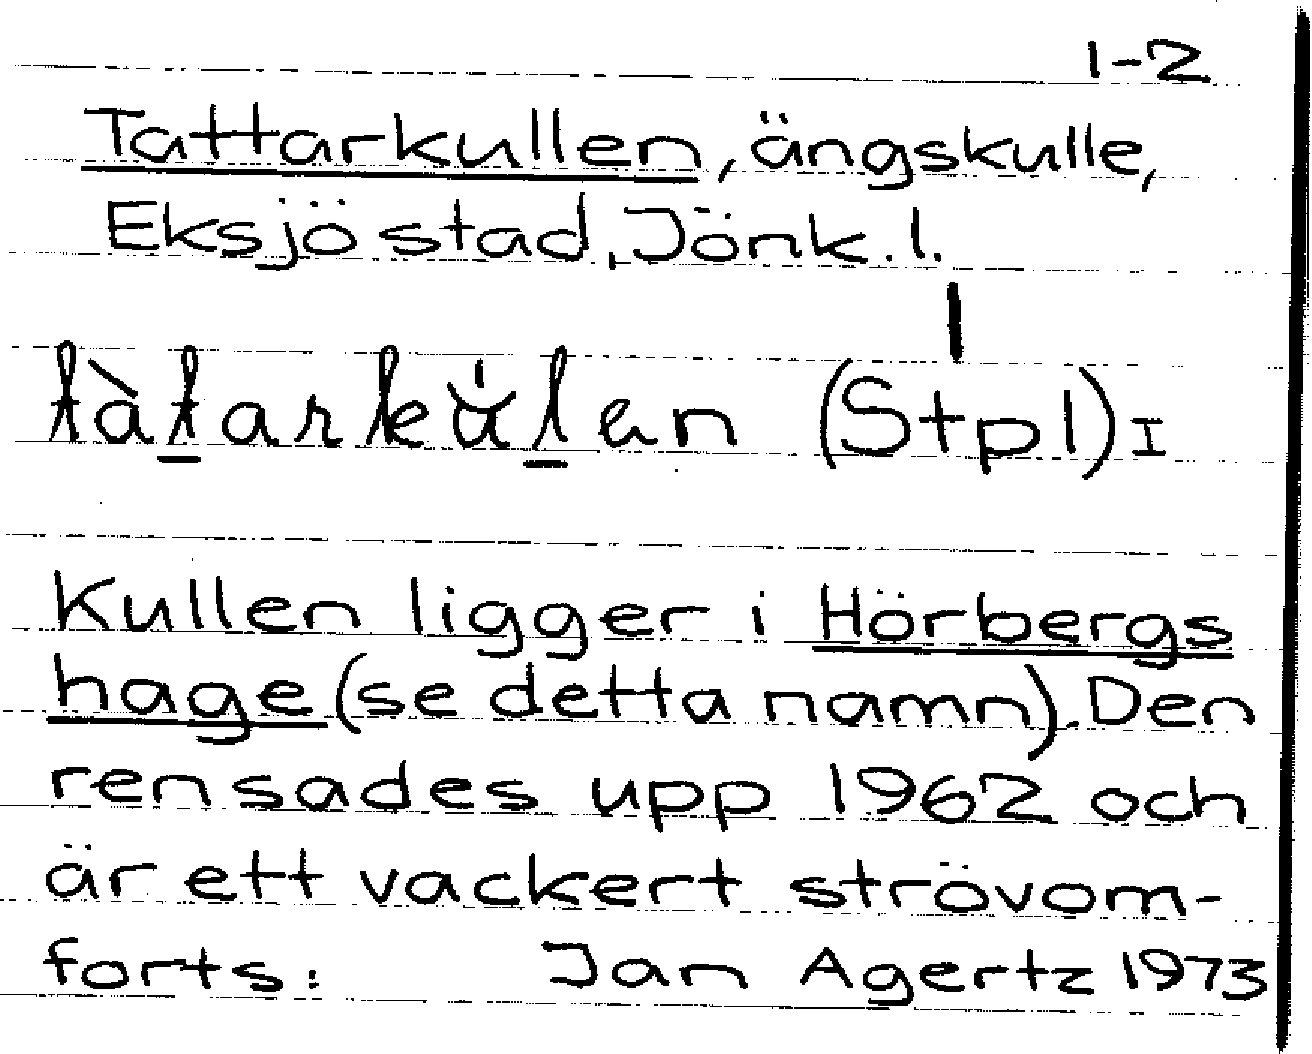 1-2
Tattarkullen, ängskulle,
Eksjö stad, Jönk. l.
tàtarku̇len (Stpl) I
Kullen ligger i Hörbergs
hage (se detta namn). Den
rensades upp 1962 och
är ett vackert strövom-
forts: Jan Agertz 1973